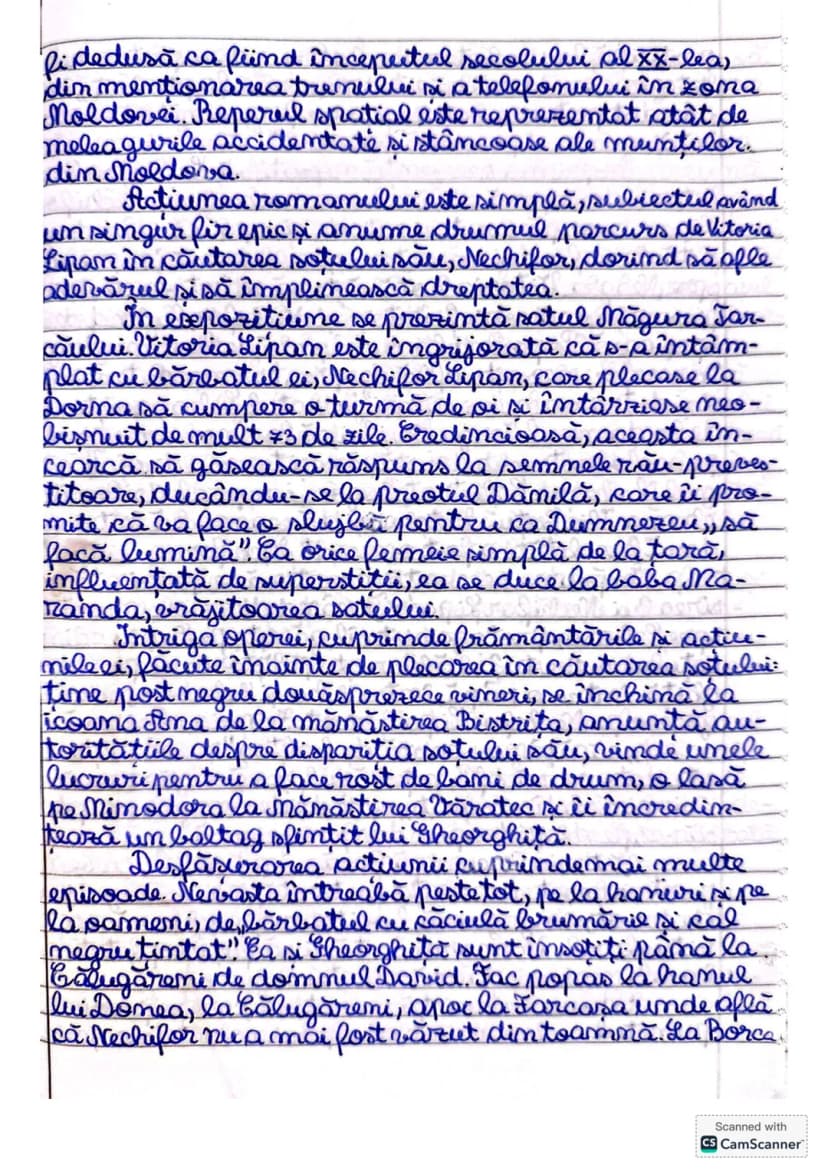 fi dedusă ca fiind începutul secolului al XX-lea,
din menționarea trenului și a telefonului în zona
Moldovei. Reperul spațial este reprezentat atât de
meleagurile accidentate și stâncoase ale munților.
din Moldova.
Acțiunea romanului este simplă, subiectul având
un singur fir epic și anume drumul parcurs de Vitoria
Lipan în căutarea soțului său, Nechifor, dorind să afle
adevărul și să împlinească dreptatea.
În expozițiune se prezintă satul Măgura Tar-
căului. Vitoria Lipan este îngrijorată că s-a întâm-
plat cu bărbatul ei, Nechifor Lipan, care plecase la
Dorna să cumpere o turmă de oi și întârziase neo-
bișnuit de mult 73 de zile. Credincioasă, aceasta în-
cearcă să găsească răspuns la semnele rău-preves-
titoare, ducându-se la preotul Dănilă, care îi pro-
mite că va face o slujbă pentru ca Dumnezeu „să
facă lumină". Ca orice femeie simplă de la țară,
influențată de superstiții, ea se duce la baba Ma-
randa, vrăjitoarea satului.
Intriga operei, cuprinde frământările și acțiu-
nile ei, făcute înainte de plecarea în căutarea soțului:
ține post negru douăsprezece vineri, se închină la
icoana Ana de la mănăstirea Bistrița, anunță au-
toritățiile despre dispariția soțului său, vinde unele
lucruri pentru a face rost de bani de drum, o lasă
pe Minodora la Mănăstirea Văratec și îi încredin-
țează un baltag sfințit lui Gheorghiță.
Desfășurarea acțiunii cuprinde mai multe
episoade. Nevasta întreabă peste tot, pe la hanuri și pe
la oameni, de „bărbatul cu căciulă brumărie și cal
negru țintat". Ea și Gheorghiță sunt însoțiți până la
Călugăreni de domnul David. Fac popas la hanul
lui Donea, la Călugăreni, apoi la Farcașa unde află
că Nechifor nu a mai fost văzut din toamnă. La Borca
Scanned with
CS CamScanner